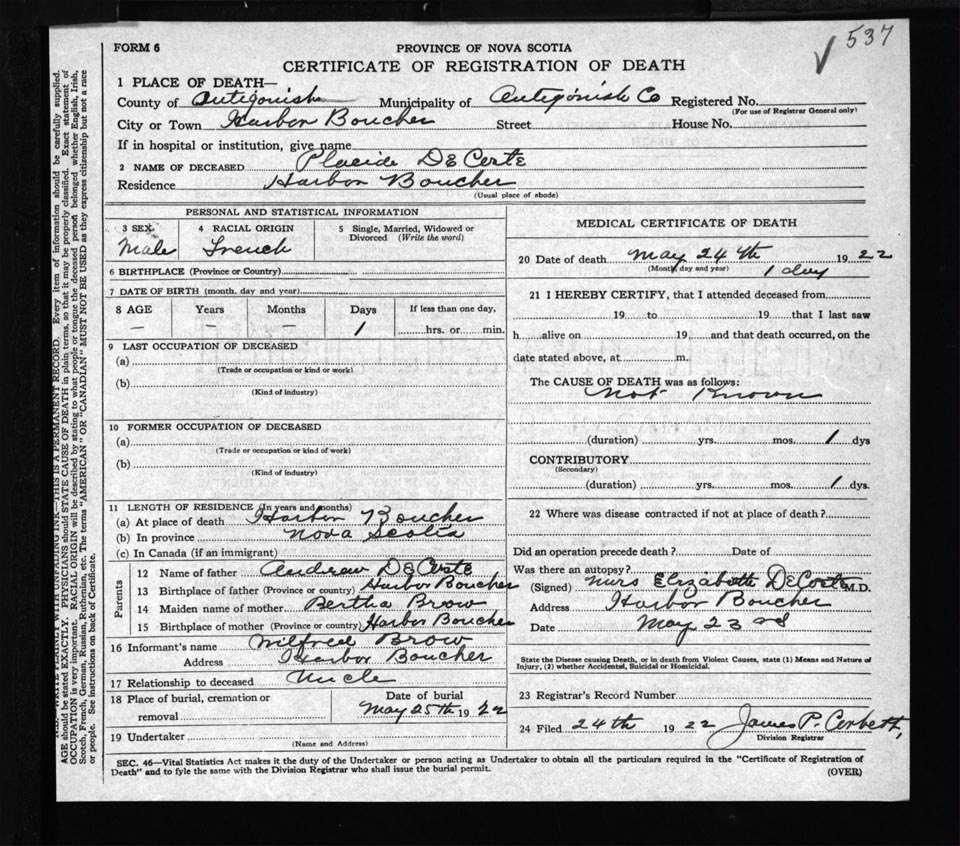 537
FORM 6
PROVINCE OF NOVA SCOTIA
CERTIFICATE OF REGISTRATION OF DEATH
1 PLACE OF DEATH—
County of Antigonish Municipality of Antigonish Co Registered No.
(For use of Registrar General only)
City or Town Harbor Boucher Street House No.
If in hospital or institution, give name
2 NAME OF DECEASED Placide DeCoste
Residence Harbor Boucher
(Usual place of abode)
PERSONAL AND STATISTICAL INFORMATION
3 SEX 4 RACIAL ORIGIN 5 Single, Married, Widowed or
Divorced (Write the word)
Male French
6 BIRTHPLACE (Province or Country)
7 DATE OF BIRTH (month, day and year)
8 AGE Years Months Days If less than one day,
— — — 1 hrs. or min.
9 LAST OCCUPATION OF DECEASED
(a)
(Trade or occupation or kind or work)
(b)
(Kind of industry)
10 FORMER OCCUPATION OF DECEASED
(a)
(Trade or occupation or kind of work)
(b)
(Kind of industry)
11 LENGTH OF RESIDENCE (In years and months)
(a) At place of death Harbor Boucher
(b) In province Nova Scotia
(c) In Canada (if an immigrant)
Parents
12 Name of father Andrew DeCoste
13 Birthplace of father (Province or country) Harbor Boucher
14 Maiden name of mother Bertha Brow
15 Birthplace of mother (Province or country) Harbor Boucher
16 Informant's name Wilfred Brow
Address Harbor Boucher
17 Relationship to deceased Uncle
18 Place of burial, cremation or
removal
Date of burial
May 25th 1922
19 Undertaker
(Name and Address)
MEDICAL CERTIFICATE OF DEATH
20 Date of death May 24th 1922
(Month, day and year) 1 day
21 I HEREBY CERTIFY, that I attended deceased from
19 to 19 that I last saw
h alive on 19 and that death occurred, on the
date stated above, at m.
The CAUSE OF DEATH was as follows:
Not Known
(duration) yrs. mos. 1 dys
CONTRIBUTORY
(Secondary)
(duration) yrs. mos. 1 dys.
22 Where was disease contracted if not at place of death?
Did an operation precede death? Date of
Was there an autopsy?
(Signed) Mrs Elizabeth DeCoste M.D.
Address Harbor Boucher
Date May 23rd
State the Disease causing Death, or in death from Violent Causes, state (1) Means and Nature of
Injury, (2) whether Accidental, Suicidal or Homicidal.
23 Registrar's Record Number
24 Filed 24th 1922 James P. Corbett,
Division Registrar
SEC. 46—Vital Statistics Act makes it the duty of the Undertaker or person acting as Undertaker to obtain all the particulars required in the "Certificate of Registration of
Death" and to fyle the same with the Division Registrar who shall issue the burial permit.
(OVER)
WRITE PLAINLY WITH UNFADING INK—THIS IS A PERMANENT RECORD. Every item of information should be carefully supplied.
AGE should be stated EXACTLY. PHYSICIANS should STATE CAUSE OF DEATH in plain terms, so that it may be properly classified. Exact statement of
OCCUPATION is very important. RACIAL ORIGIN will be described by stating to what people or tongue the deceased person belonged whether English, Irish,
Scotch, French, German, Russian, Ruthenian, etc. The terms "AMERICAN" OR "CANADIAN" MUST NOT BE USED as they express citizenship but not a race
or people. See instructions on back of Certificate.